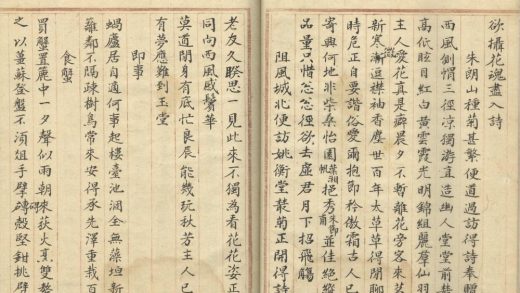 欲攝花魂盡入詩
朱朗山種菊甚繁便道過訪得詩奉贈
西風劊惘三徑凉獨游直造幽人堂堂前
高低眩目紅白黃雲霞光明錦組麗羣仙羽
主人愛花真是癖晨夕不暫離花旁客來
新寒漸逗襟袖香塵世百年太草草得閒
時危正自要諧俗愛爾抱節矜傲霜古人已
寄興何地非柴桑怡園挹秀並佳絕
品量只惜怱怱徑欲去虛君月下招飛觴
阻風城北便訪姚衡堂叢菊正開得詩
老友久睽思一見此來不獨為看花花姿正
同向西風感鬢華
莫道閒身有底忙良辰能幾玩秋芳主人已
有夢應難到玉堂
即事
蝸廬居自適何事起樓臺池涸全無藻垣新
離鄰不隔疎樹鳥常來安得承先澤重栽百
食蟹
買蟹置籬中一夕聲似雨朝來荻火烹雙螯
之以薑蘇登盤不須俎手擘磚殼堅鉗挑